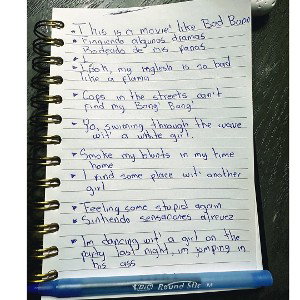 This is a movie! like Bad Bone
Finguiendo algunos dramas
Rodeado de mis panas
Look, my inglesh is so bad
like a flama
Cops in the streets don't
find my Bang Bang
Yo, swiming through the wave
wit a white girl.
Smoke my blunts in my time
home
I find some place wit another
girl
Feeling some stupid again
Sintiendo sensaciones alrevez
Im dancing wit a girl on the
party last night, im jumping in
his ass
Round Stic M